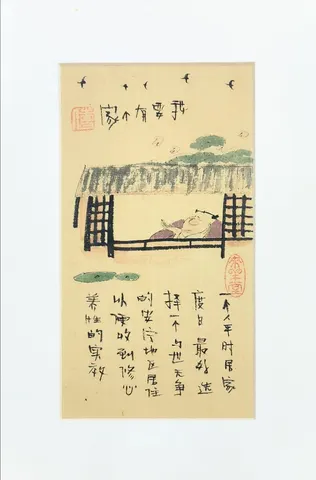 我要有个家
一个人平时居家
度日 最好选
择一个与世无争
的安宁地区居住
以便收到修心
养性的实效